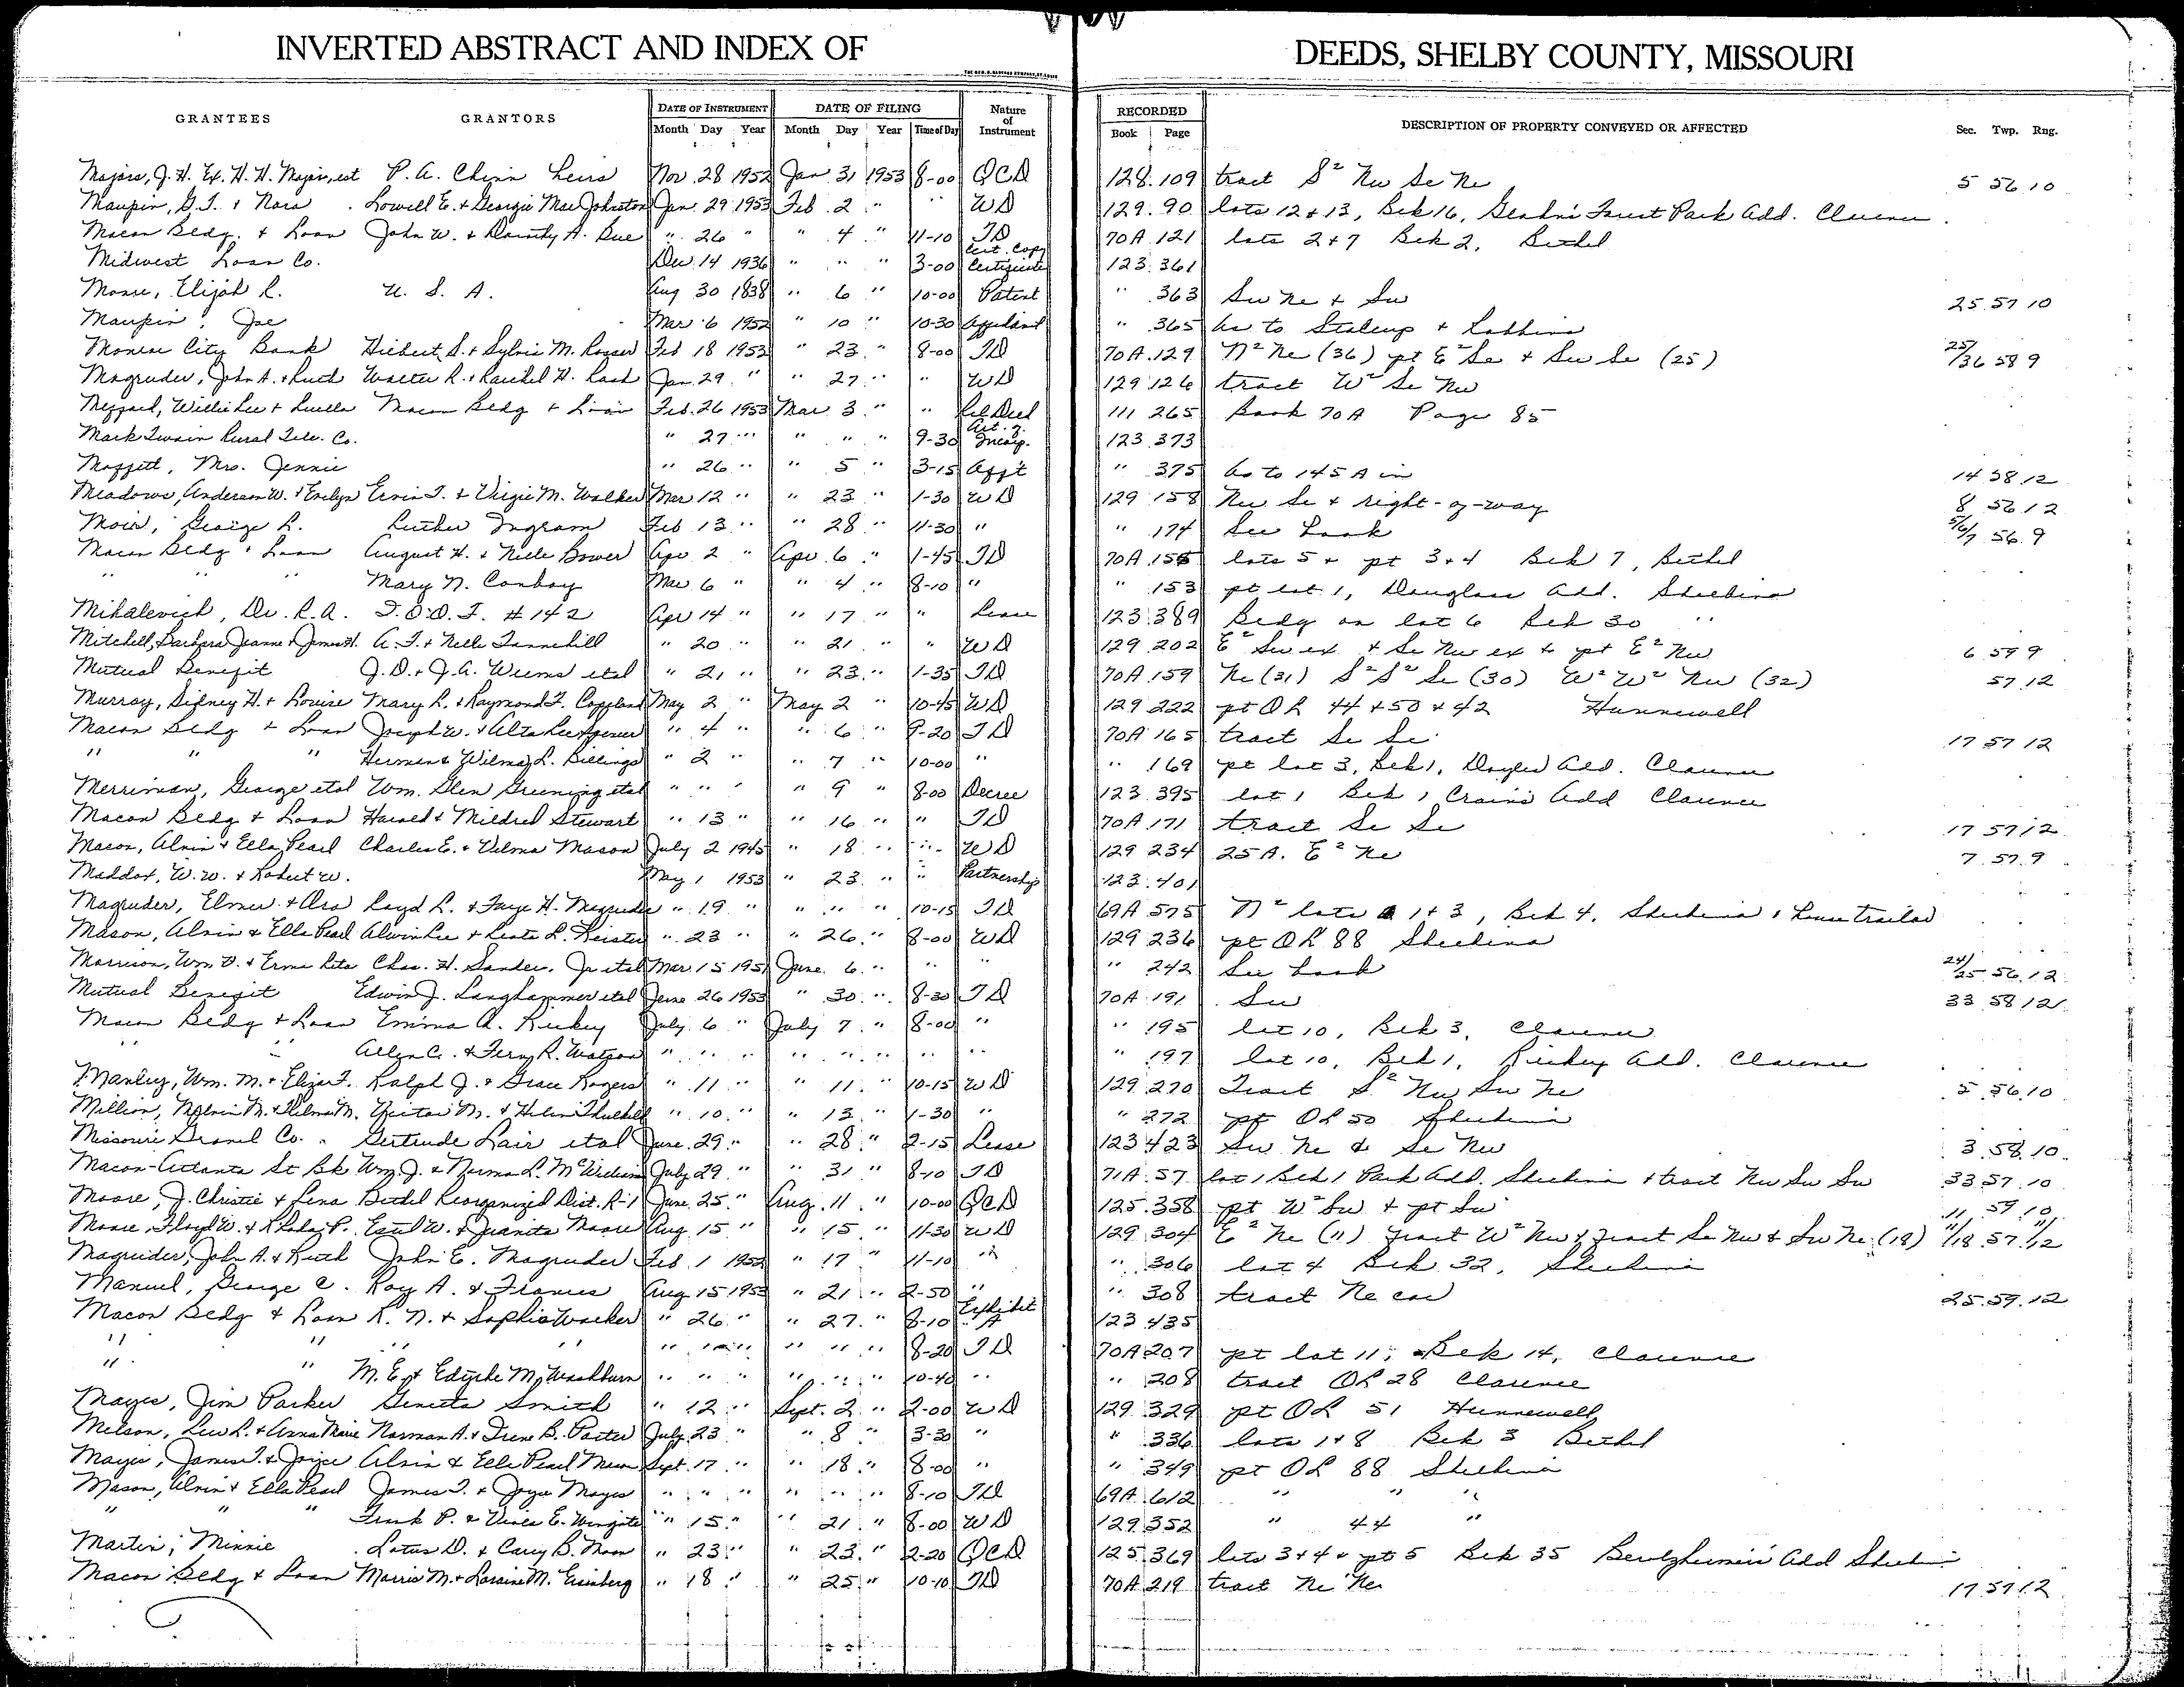 INVERTED ABSTRACT AND INDEX OF DEEDS, SHELBY COUNTY, MISSOURI
GRANTEES GRANTORS DATE OF INSTRUMENT DATE OF FILING Nature of Instrument RECORDED DESCRIPTION OF PROPERTY CONVEYED OR AFFECTED Sec. Twp. Rng.
Month Day Year Month Day Year Time of Day Book Page
Majors, J. H. Ex. H. H. Majors, est P. A. Chinn heirs Nov. 28 1952 Jan 31 1953 8-00 QCD 128 109 tract S² Nw Se Ne 5 56 10
Maupin, G. T. & Nora Lowell E. & Georgie Mae Johnston Jan. 29 1953 Feb 2 " " WD 129 90 lots 12 + 13, Blk 16, Forest Park Add. Clarence
Macon Bldg. & Loan John W. & Dorothy A. " 26 " " 4 " 11-10 TD 70A 121 lots 2 + 7 Blk 2, Bethel
Midwest Loan Co. Dec. 14 1936 " " " 3-00 Cert. Copy Certificate 123 361
Elijah R. U. S. A. Aug 30 1838 " 6 " 10-00 Patent " 363 Sw Ne + Sw 25 57 10
Maupin, Joe Mar 6 1952 " 10 " 10-30 Affidavit " 365 as to Stalcup + Robbins
Monroe City Bank S. & Sylvia M. Feb 18 1953 " 23 " 8-00 TD 70A 129 N² Ne (36) pt E² Se + Sw Se (25) 25/36 58 9
Magruder, John A. & Ruth Walter R. & Rachel H. Rash Jan. 29 " " 27 " " WD 129 126 tract W² Se Nw
Willie Lee & Luella Macon Bldg & Loan Feb. 26 1953 Mar. 3 " " Rel Deed 111 265 Book 70A Page 85
Mark Twain Rural Tele. Co. " 27 " " " " 9-30 Art. of Incorp. 123 373
Moffett, Mrs. Jennie " 26 " " 5 " 3-15 Afft " 375 as to 145 A in 14 58 12
Meadows, Anderson W. & Evelyn Ervin T. & Virgie M. Walker Mar 12 " " 23 " 1-30 WD 129 158 Nw Se + right-of-way 8 56 12
George L. Luther Ingram Feb 13 " " 28 " 11-30 " " 174 See book 5/6/7 56 9
Macon Bldg & Loan August H. & Nelle Bower Apr 2 " Apr. 6 " 1-45 TD 70A 155 lots 5 + pt 3+4 Blk 7, Bethel
" " " Mary N. Conboy Mar 6 " " 4 " 8-10 " " 153 pt lot 1, Douglass Add. Shelbina
Mihalevich, Dr. R. A. I.O.O.F. #142 Apr 14 " " 17 " " Lease 123 389 Bldg on lot 6 Blk 30 "
Mitchell, Barbara Jeanne & James H. A. T. & Nelle Tannehill " 20 " " 21 " " WD 129 202 E² Sw ex + Se Nw ex + pt E² Nw 6 59 9
Mutual Benefit J. D. & J. A. Weems etal " 21 " " 23 " 1-35 TD 70A 159 Ne (31) S² S² Se (30) W² W² Nw (32) 57 12
Murray, Sidney H. & Louise Mary L. & Raymond F. Copeland May 2 " May 2 " 10-45 WD 129 222 pt OL 44 + 50 + 42 Hunnewell
Macon Bldg & Loan Joseph W. & Alta Lee Spencer " 4 " " 6 " 9-20 TD 70A 165 tract Se Se 17 57 12
" " " Herman & Wilma L. Billings " 2 " " 7 " 10-00 " " 169 pt lot 3, Blk 1, Doyles Add. Clarence
Merriman, George etal Wm. Glen Greening etal " " " " 9 " 8-00 Decree 123 395 lot 1 Blk 1 Crain's Add Clarence
Macon Bldg & Loan Harold & Mildred Stewart " 13 " " 16 " " TD 70A 171 tract Se Se 17 57 12
Mason, Alvin & Ella Pearl Charles E. & Velma Mason July 2 1945 " 18 " " WD 129 234 25 A. E² Ne 7 57 9
Maddox, W. W. & Robert W. May 1 1953 " 23 " " Partnership 123 401
Magruder, Elmer & Ora Loyd L. & Faye H. Magruder " 19 " " " " 10-15 TD 69A 575 N² lots 1 + 3, Blk 4, Shelbina + house trailer
Mason, Alvin & Ella Pearl Alvin Lee & L. Keister " 23 " " 26 " 8-00 WD 129 236 pt OL 88 Shelbina
Morrison, Wm. O. & Erma Leta Chas. H. Sander, Jr etal Mar. 15 1951 June 6 " " " " 242 See book 24/25 56 12
Mutual Benefit Edwin J. Langhammer etal June 26 1953 " 30 " 8-30 TD 70A 191 Sw 33 58 12
Macon Bldg & Loan Emma A. Richey July 6 " July 7 " 8-00 " " 195 lot 10, Blk 3, Clarence
" " Allen C. & Fern R. Watson " " " " " " " " " 197 lot 10, Blk 1, Richey Add. Clarence
Manley, Wm. M. & Eliza F. Ralph J. & Grace Rogers " 11 " " 11 " 10-15 WD 129 270 Tract S² Nw Sw Ne 5 56 10
Million, Melvin M. & Wilma M. M. & Helen " 10 " " 13 " 1-30 " " 272 pt OL 50 Shelbina
Missouri Gravel Co. Gertrude Lair etal June 29 " " 28 " 2-15 Lease 123 423 Sw Ne & Se Nw 3 58 10
Macon-Atlanta St Bk Wm. J. & Norma L. McWilliams July 29 " " 31 " 8-10 TD 71A 57 lot 1 Blk 1 Park Add. Shelbina + tract Nw Sw Sw 33 57 10
Moore, J. Christie & Lena Bethel Reorganized Dist. R-1 June 25 " Aug. 11 " 10-00 QCD 125 358 pt W² Sw + pt Sw 11 59 10
Moore, Floyd W. & Rhoda P. W. & Juanita Moore Aug 15 " " 15 " 11-30 WD 129 304 E² Ne (11) Tract W² Nw & Tract Se Nw & Sw Ne (18) 11/18 57 11/12
Magruder, John A. & Ruth John E. Magruder Feb 1 1952 " 17 " 11-10 " " 306 lot 4 Blk 32, Shelbina
Manuel, George C. Roy A. & Frances Aug 15 1953 " 21 " 2-50 " " 308 tract Ne cor 25 59 12
Macon Bldg & Loan R. N. & Sophia Walker " 26 " " 27 " 8-10 Exhibit A 123 435
" " " " " " " " " " 8-20 TD 70A 207 pt lot 11, Blk 14, Clarence
" " M. E. & Edythe M. Washburn " " " " " " 10-40 " " 208 tract OL 28 Clarence
Mayes, Jim Parker Geneta Smith " 12 " Sept. 2 " 2-00 WD 129 329 pt OL 51 Hunnewell
Melson, Lew L. & Anna Marie Norman A. & Irene B. Porter July 23 " " 8 " 3-30 " " 336 lots 1 + 8 Blk 3 Bethel
Mayes, James T. & Joyce Alvin & Ella Pearl Mason Sept. 17 " " 18 " 8-00 " " 349 pt OL 88 Shelbina
Mason, Alvin & Ella Pearl James T. & Joyce Mayes " " " " " " 8-10 TD 69A 612 " " "
" " " Frank P. & Viola E. Wingate " 15 " " 21 " 8-00 WD 129 352 " 44 "
Martin, Minnie Lotus D. & Carey B. Moon " 23 " " 23 " 2-20 QCD 125 369 lots 3 + 4 + pt 5 Blk 35 Add Shelbina
Macon Bldg & Loan Morris M. & Loraine M. " 18 " " 25 " 10-10 TD 70A 219 tract Ne Ne 17 57 12